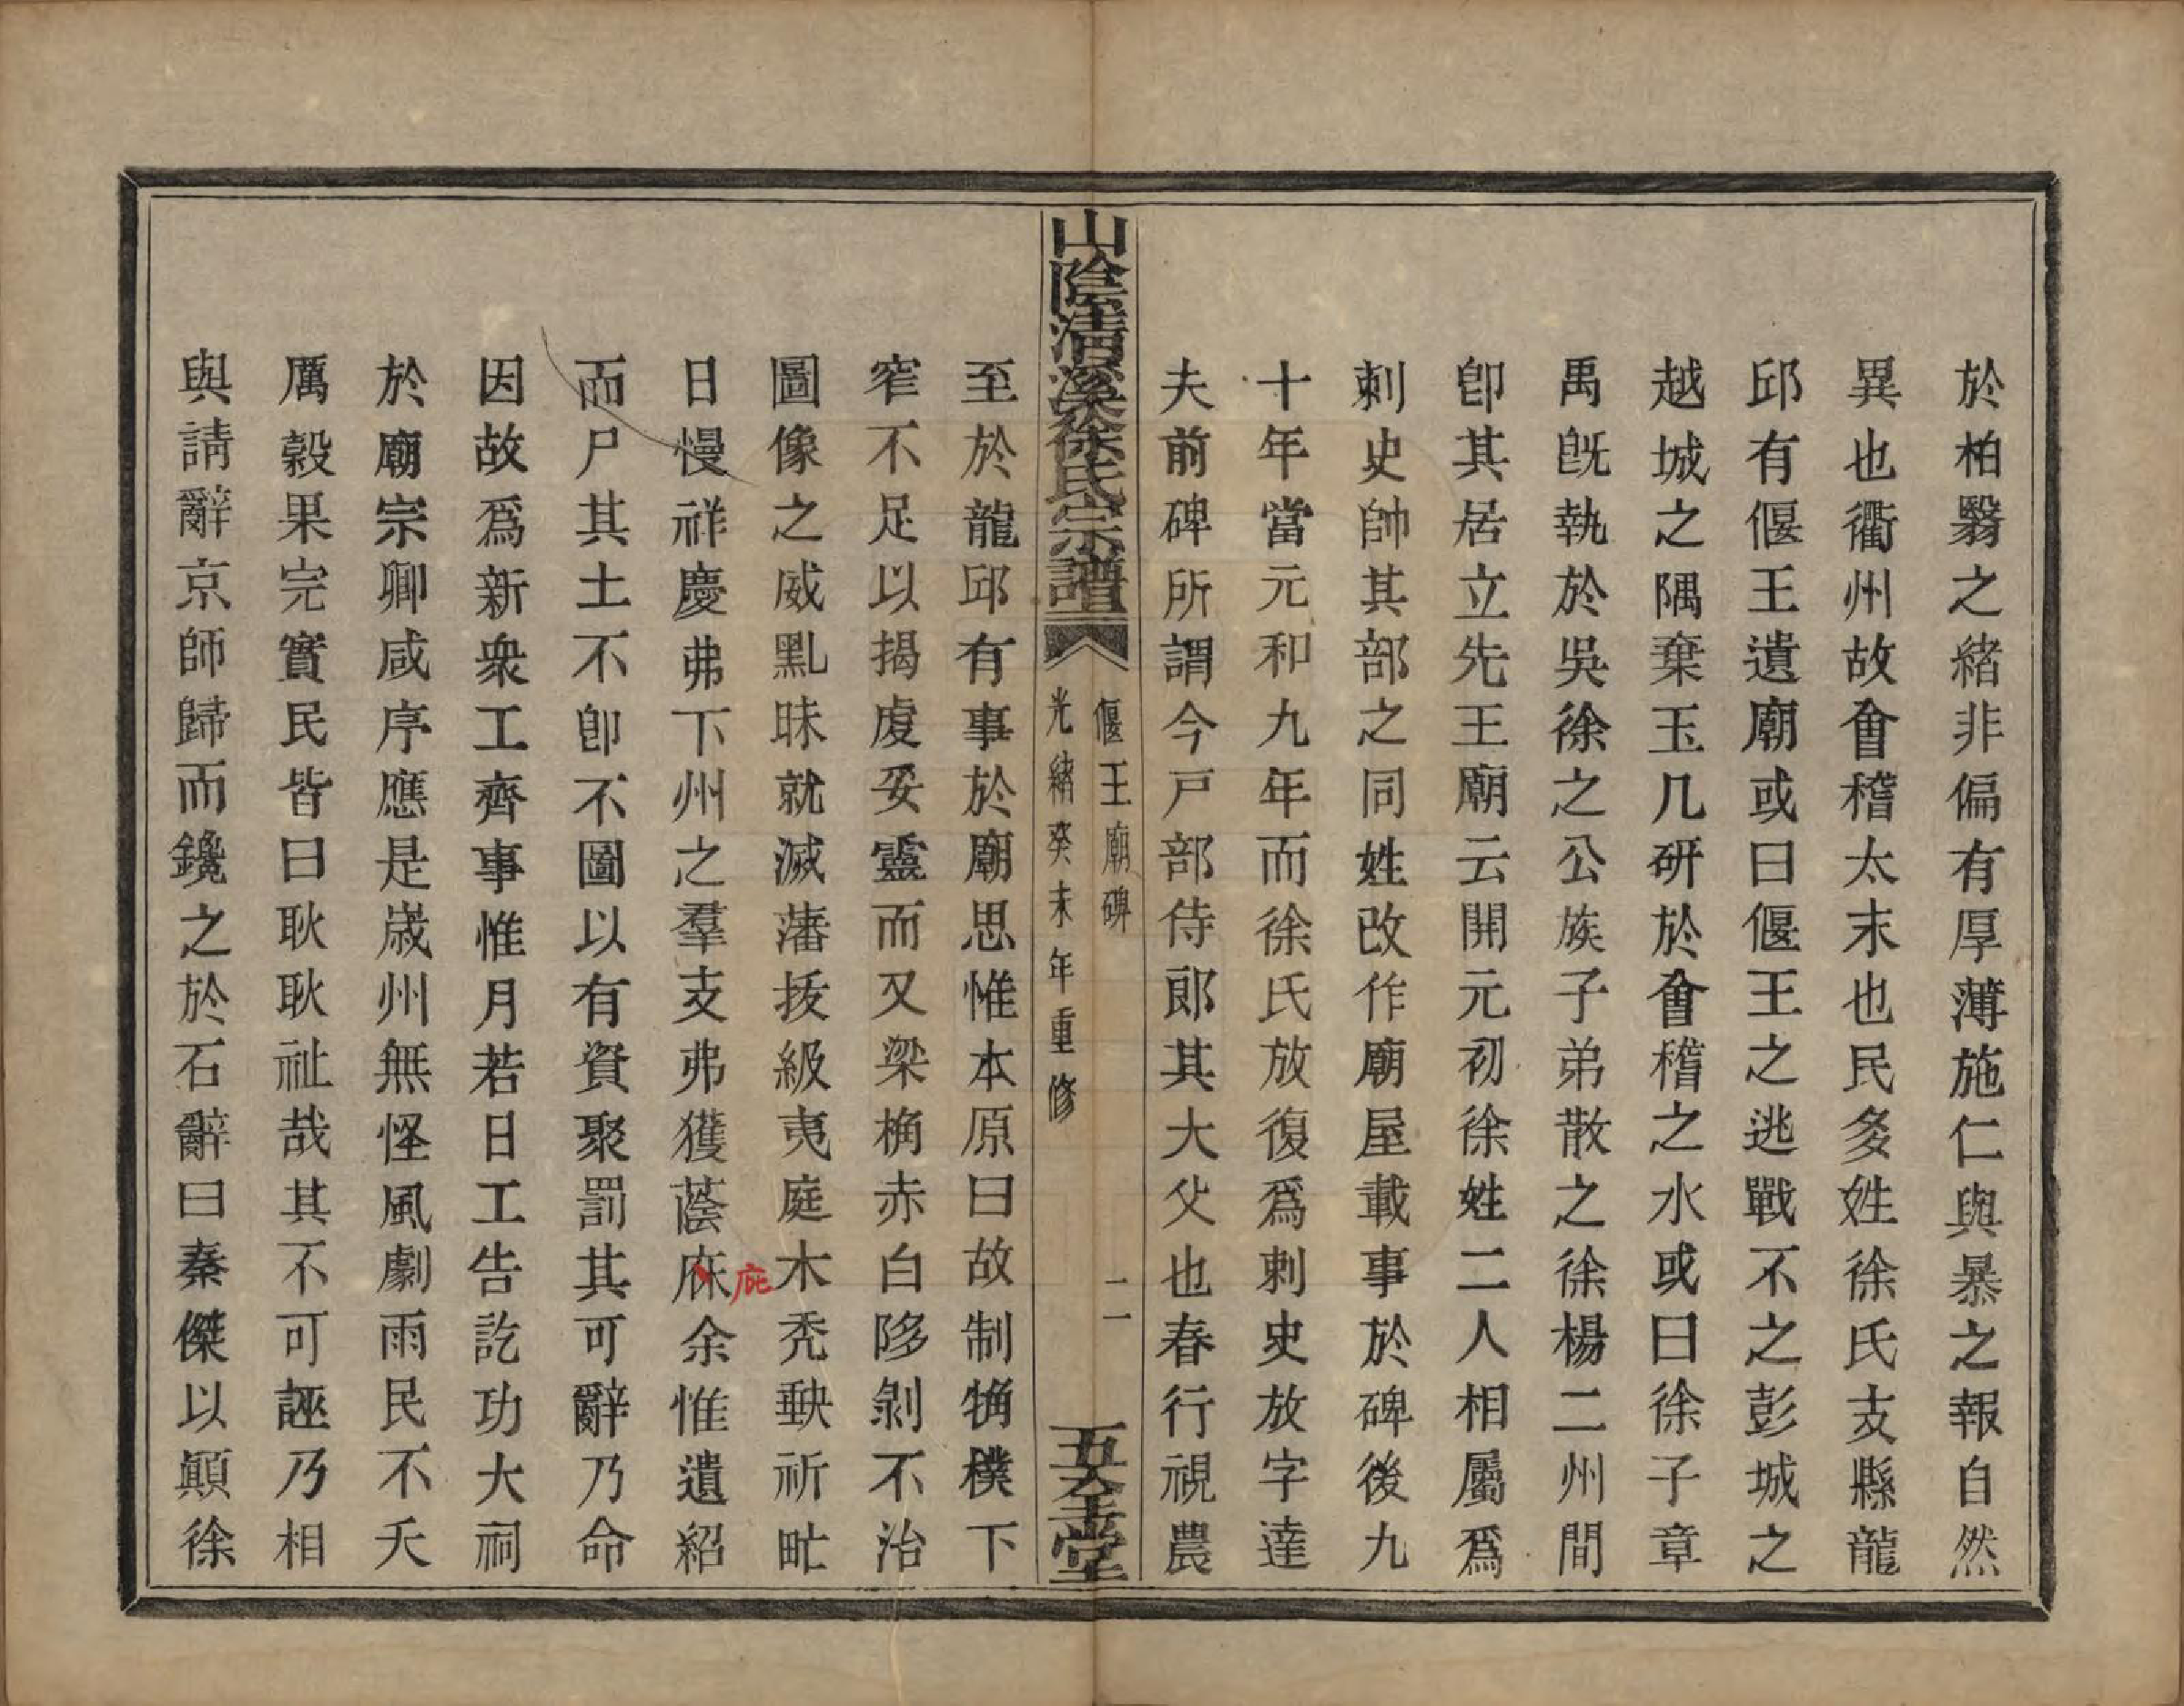 於柏翳之緒非偏有厚薄施仁與暴之報自然
異也衢州故會稽太末也民多姓徐氏支縣龍
邱有偃王遺廟或曰偃王之逃戰不之彭城之
越城之隅棄玉几研於會稽之水或曰徐子章
禹旣執於吳徐之公族子弟散之徐楊二州間
卽其居立先王廟云開元初徐姓二人相屬爲
刺史帥其部之同姓改作廟屋載事於碑後九
十年當元和九年而徐氏放復爲刺史放字達
夫前碑所謂今戸部侍郞其大父也春行視農
山陰清溪徐氏宗譜
偃王廟碑
光緒癸未年重修
二
五全堂
至於龍邱有事於廟思惟本原曰故制觕樸下
窄不足以揭虔妥靈而又梁桷赤白陊剝不治
圖像之威黓昧就滅藩拔級夷庭木禿缺祈甿
日慢祥慶弗下州之羣支弗獲蔭庥余惟遺紹
庇
而尸其土不卽不圖以有資聚罰其可辭乃命
因故爲新衆工齊事惟月若日工告訖功大祠
於廟宗卿咸序應是歲州無怪風劇雨民不夭
厲穀果完實民皆曰耿耿祉哉其不可誣乃相
與請辭京師歸而鑱之於石辭曰秦傑以顚徐